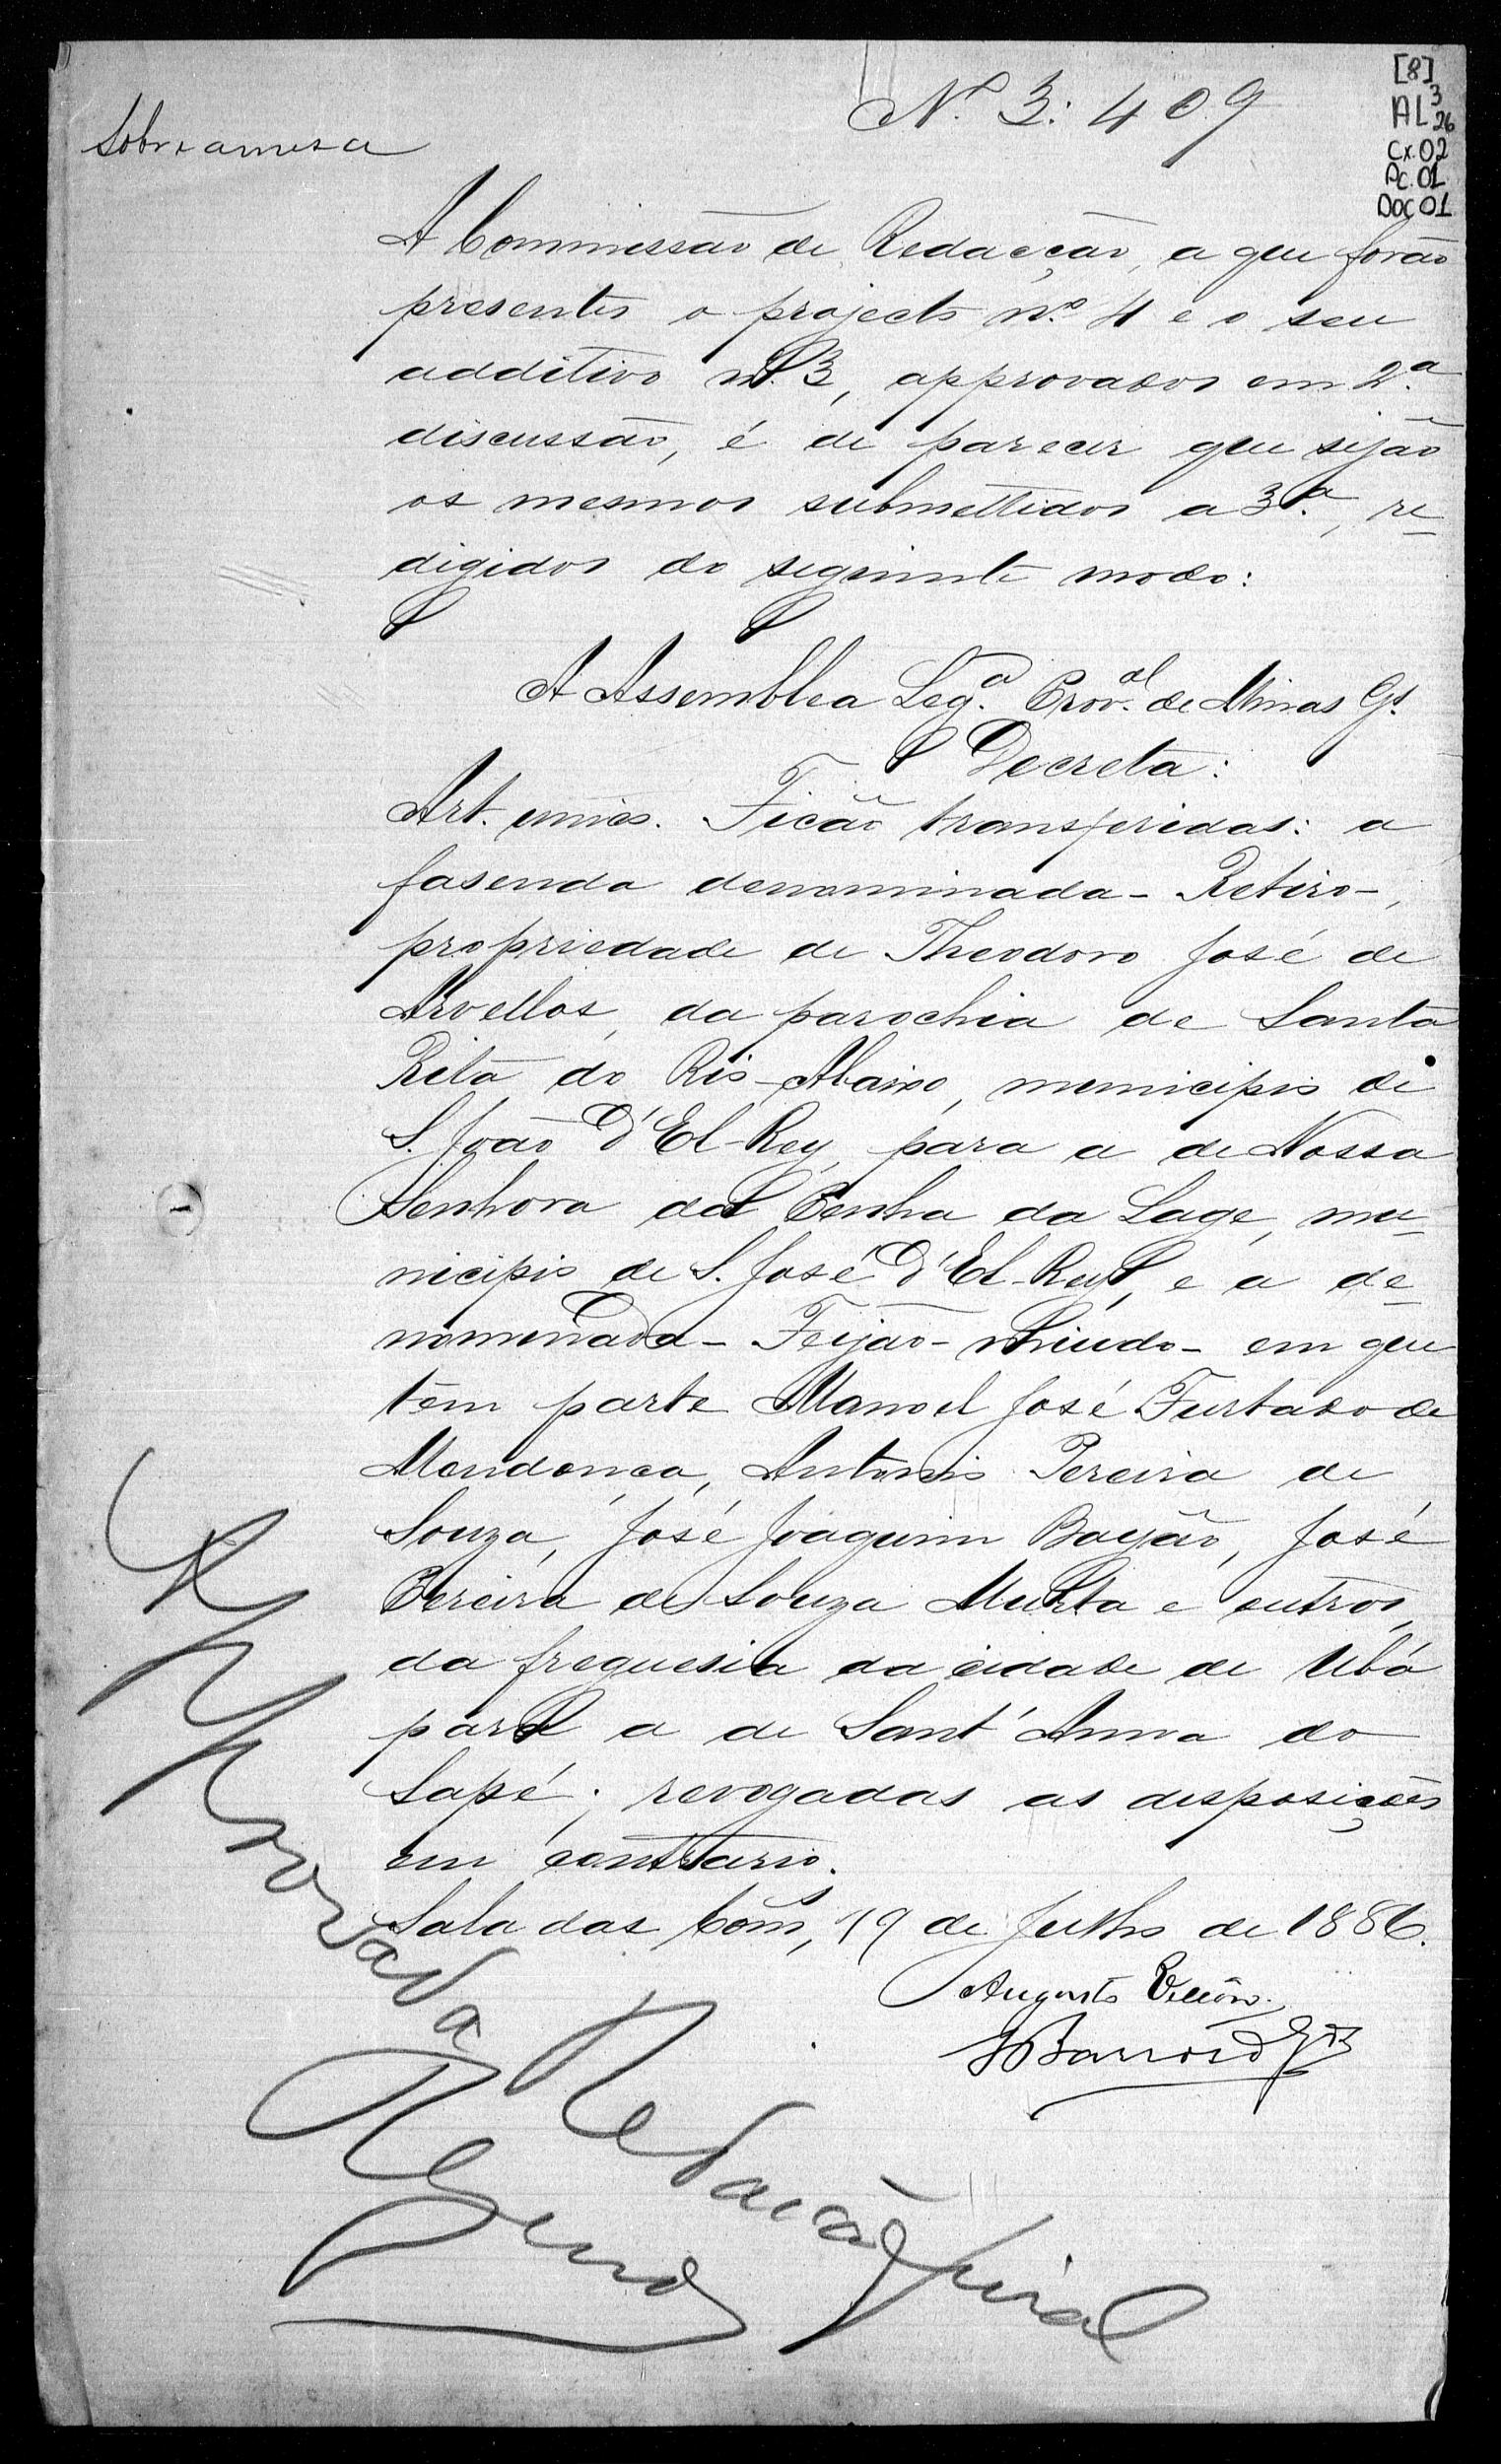 [8]
AL 3
26
Cx. 02
Pc. 01
Doc 01
Nº 3:409
Sobre a mesa
A Commissão de Redacção, a que forão
presentes o projecto nº 4 e o seu
additivo nº 3, approvados em 2ª
discussão, é de parecer que sejão
os mesmos submettidos a 3ª, re-
digidos do seguinte modo:
A Assemblea Legª Proval de Minas Gs.
Decreta:
Art. unico. Ficão transferidas: a
fasenda denominada - Retiro -,
propriedade de Theodoro José de
Arvellos, da parochia de Santa
Rita do Rio-Abaixo, municipio de
S. João d'El-Rey, para a de Nossa
Senhora da Penha da Lage, mu-
nicipio de S. José d'El-Rey, e a de-
nominada - Feijão-Miudo - em que
têm parte Manoel José Furtado de
Mendonça, Antonio Pereira de
Souza, José Joaquim Bayão, José
Pereira de Souza Murta e outros,
da freguesia da cidade de Ubá
para a de Sant'Anna do
Sapé; revogadas as disposições
em contrario.
Sala das Coms, 19 de Julho de 1886.
Augusto
Barros
Approvada
Redacção final